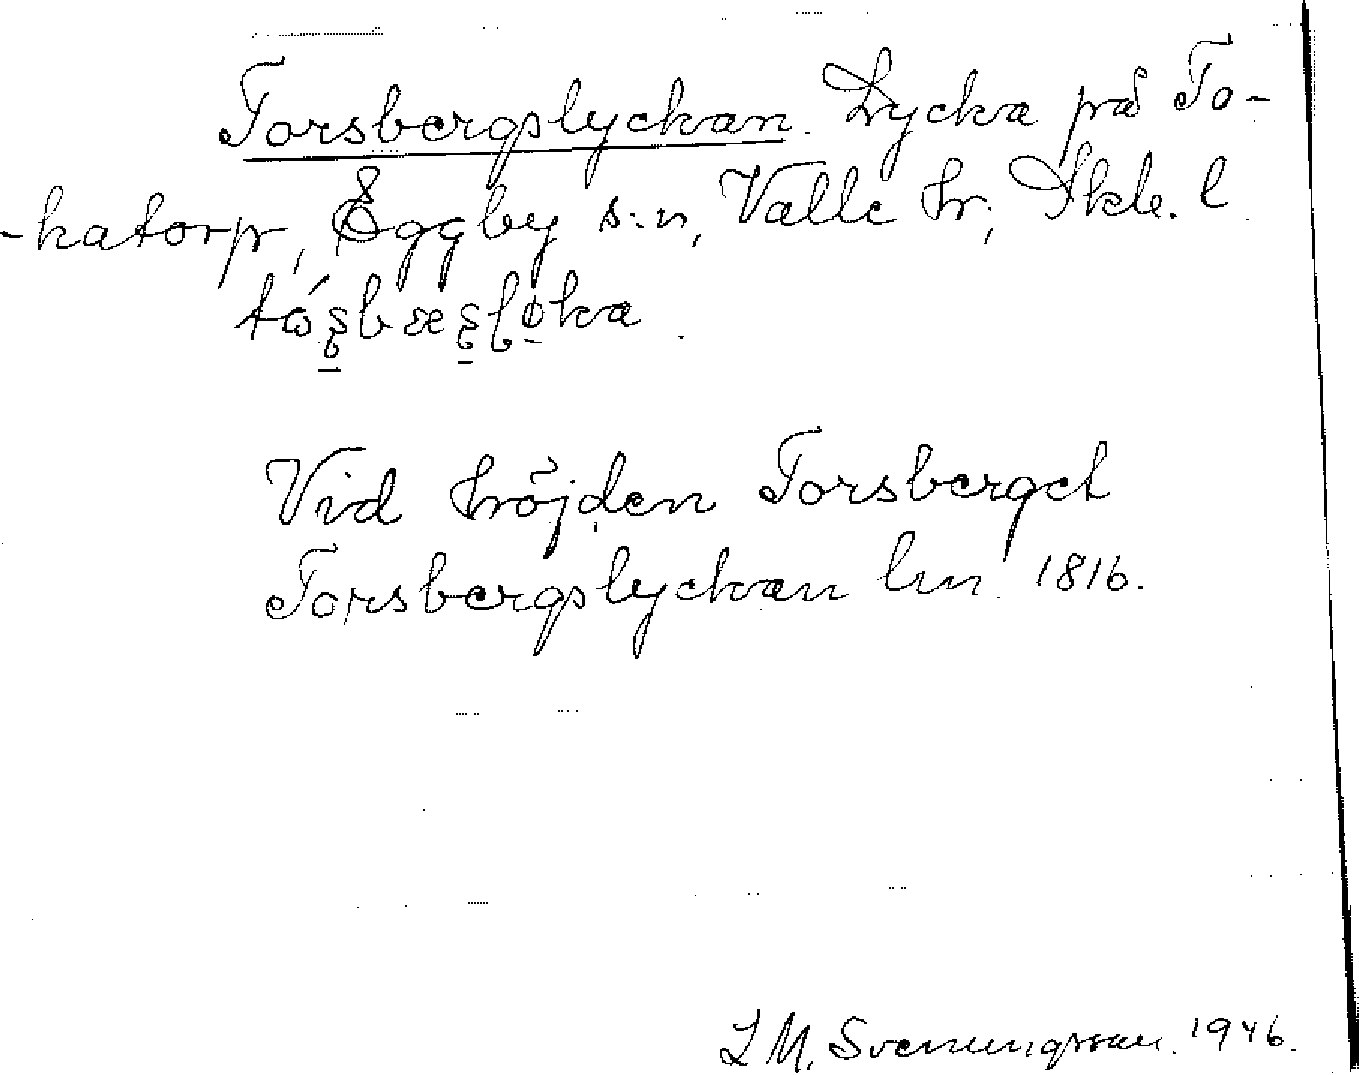 Torsbergslyckan. Lycka på To-
-katorp, Eggby s:n, Valle hr, Skb. l
Vid höjden Torsberget
Torsbergslyckan lm 1816.
L M. Svenungsson. 1946.